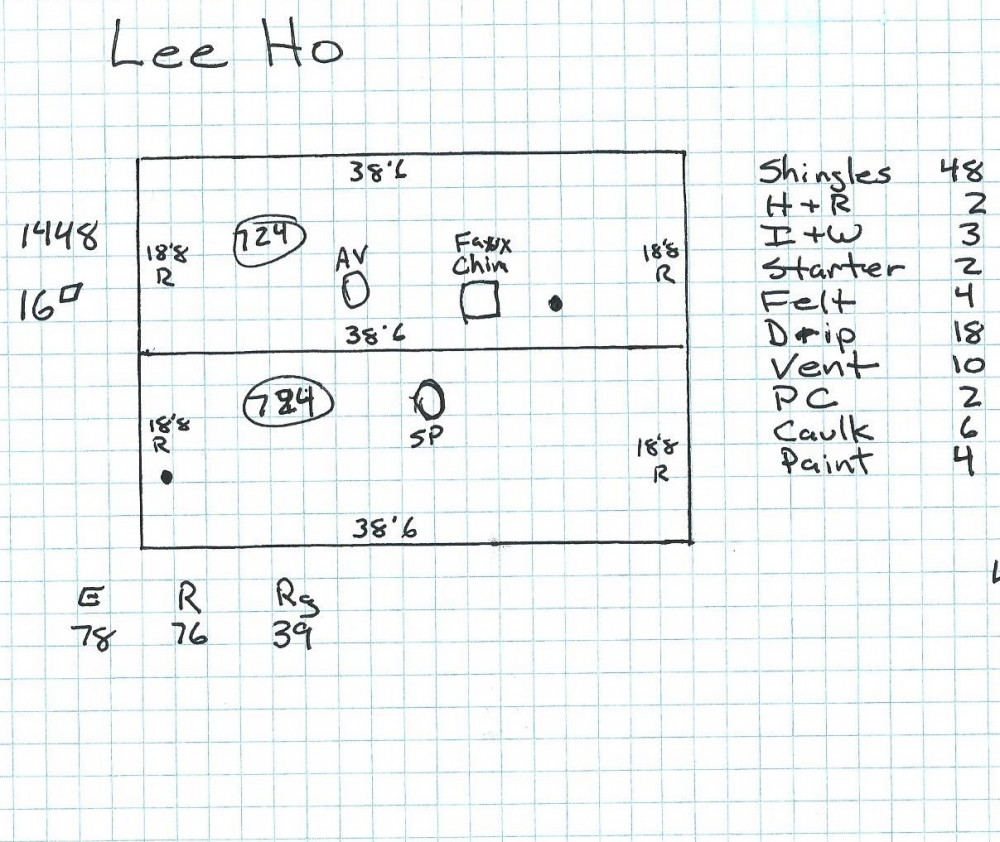 Lee Ho
38'6
1448
16□
18'8
R
724
AV
Faux
Chim
18'8
R
38'6
18'8
R
724
SP
18'8
R
38'6
Shingles 48
H + R 2
I + W 3
Starter 2
Felt 4
Drip 18
Vent 10
PC 2
Caulk 6
Paint 4
E R Rg
78 76 39